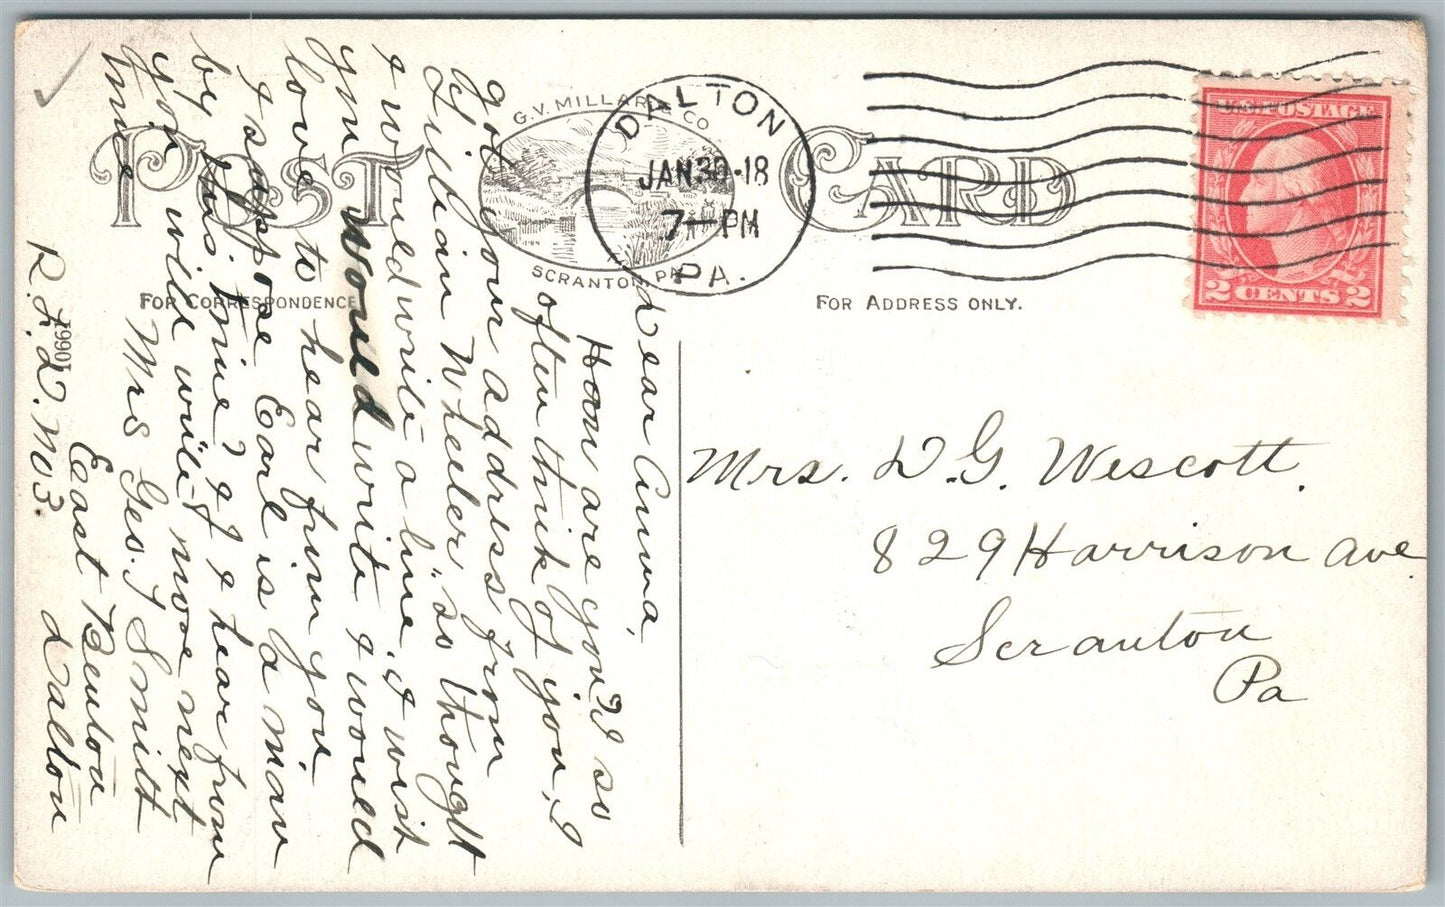 POST CARD
G.V. MILLAR & CO
SCRANTON, PA.
DALTON
JAN 30-18
7-PM
PA.
U.S. POSTAGE
2 CENTS 2
FOR CORRESPONDENCE
FOR ADDRESS ONLY.
Dear Anna,
How are you? I so
often think of you, I
got your address from
Lydian Wheeler, so thought
I would write a line. I wish
you would write I would
love to hear from you.
I suppose Earl is a man
by this time? If I hear from
you will write more next
time
Mrs Geo. T Smith
East Benton
Dalton
R.F.D. No 3.
19901
Mrs. D.G. Wescott.
829 Harrison Ave
Scranton
Pa